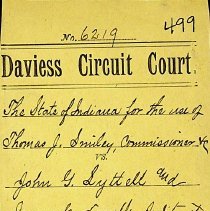 499
No. 6219
Daviess Circuit Court.
The State of Indiana for the use of
Thomas J. Smiley, Commissioner &c
vs.
John G. Lyttell and